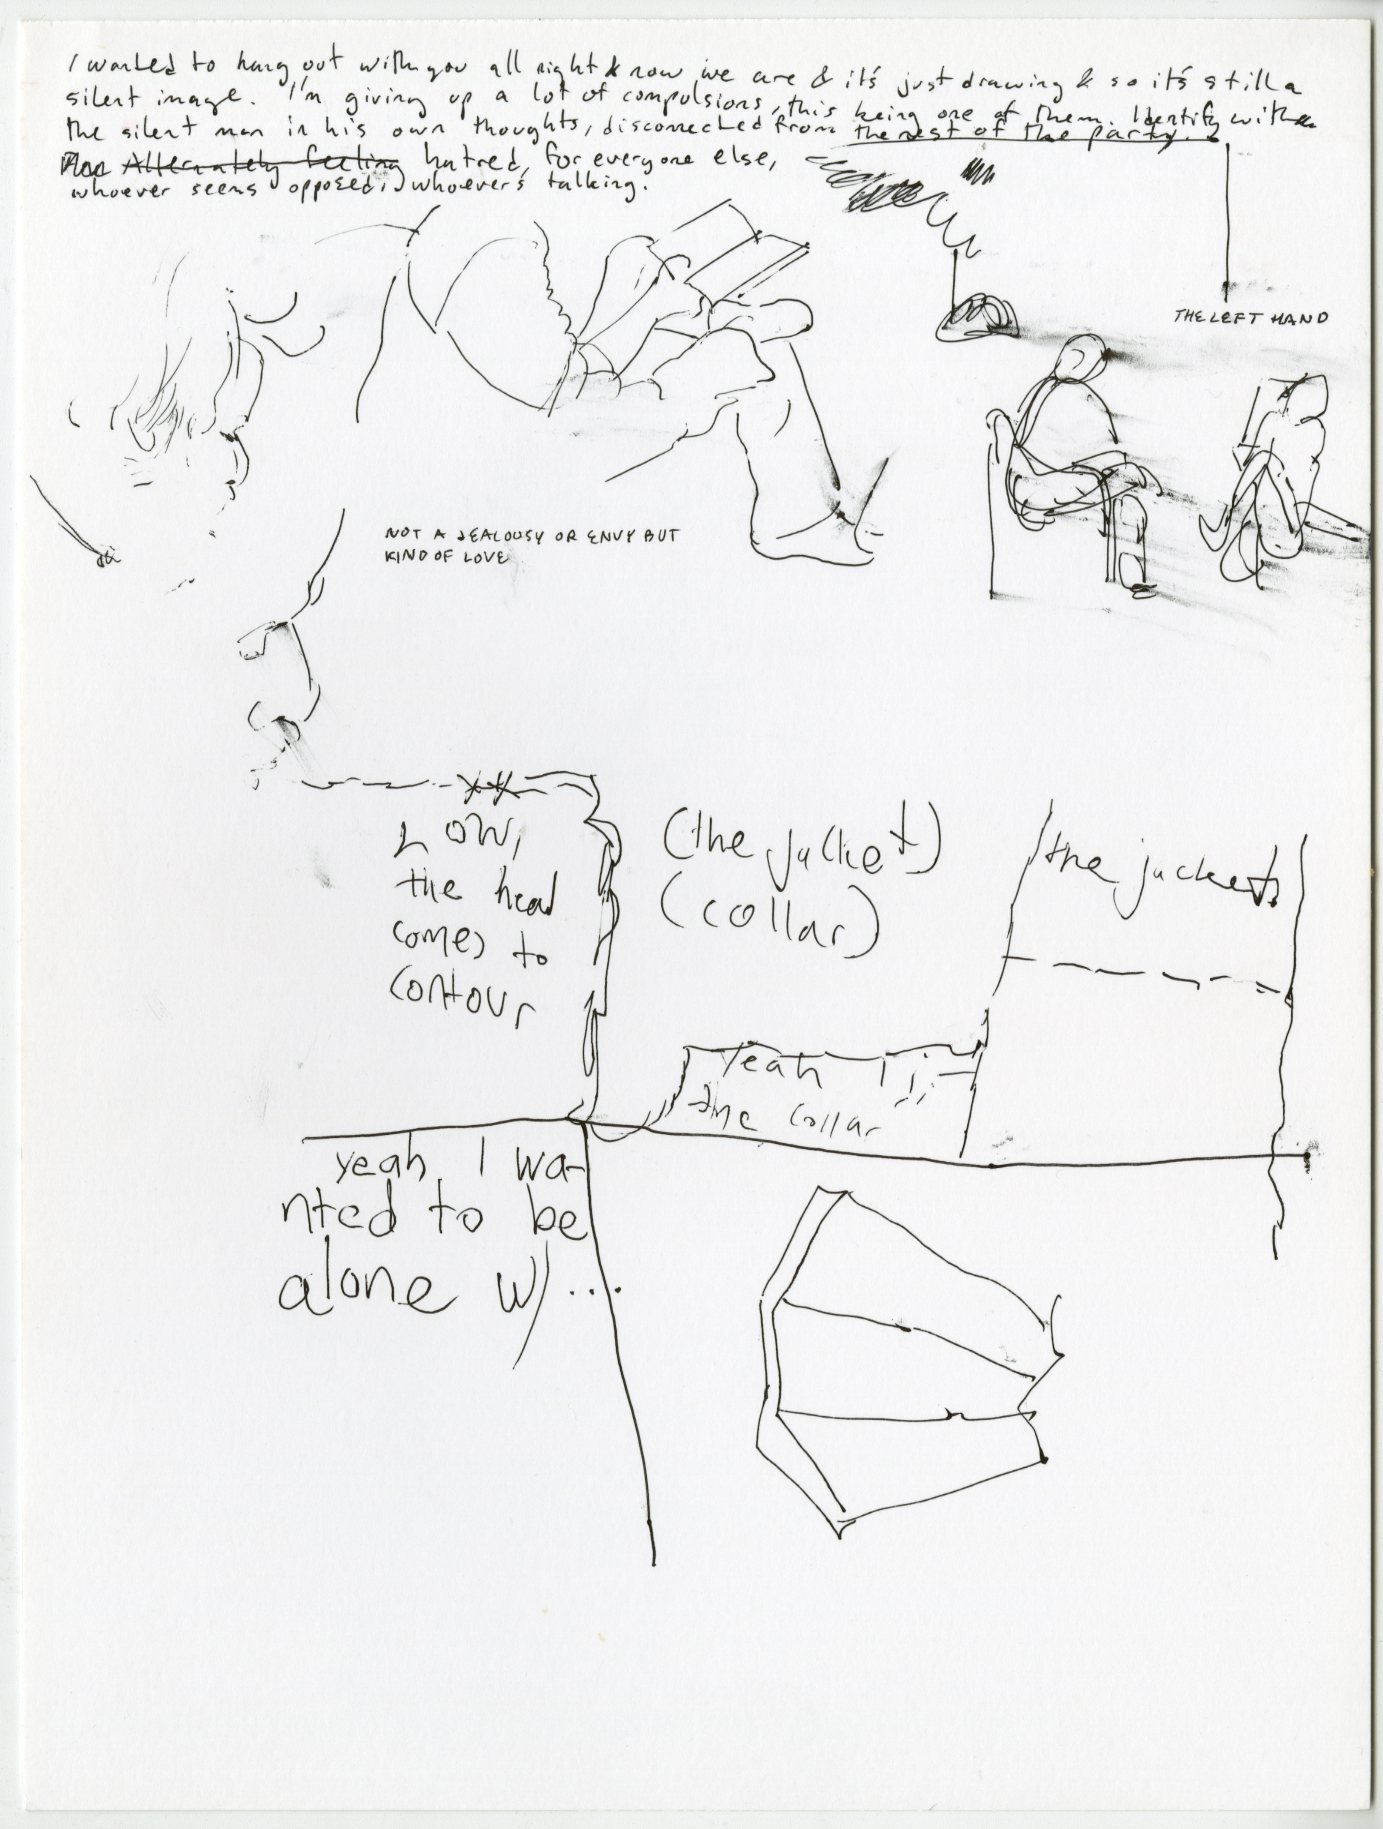 I wanted to hang out with you all night & now we are & it's just drawing & so it's still a
silent image. I'm giving up a lot of compulsions, this being one of them. Identify with
the silent man in his own thoughts, disconnected from the rest of the party.
Alternately feeling hatred, for everyone else,
whoever seems opposed, whoever's talking.
THE LEFT HAND
NOT A JEALOUSY OR ENVY BUT
KIND OF LOVE
LOW,
the head
comes to
contour
(the jacket)
(collar)
the jacket
Yeah
the collar
yeah, I wa-
nted to be
alone w/...